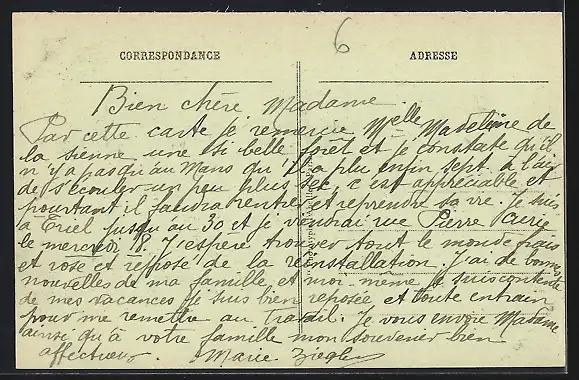 6
CORRESPONDANCE
ADRESSE
Bien chère Madame.
Par cette carte je remercie Melle Madeleine de
la sienne une si belle forêt et je constate qu'il
n'y a pas qu'au Mans qu'il a plu enfin sept. à l'air
de s'écouler un peu plus sec, c'est appréciable et
pourtant il faudra rentrer et reprendre sa vie. Je suis
à Triel jusqu'au 30 et je viendrai rue Pierre Curie
le mercredi 8. J'espère trouver tout le monde frais
et rose et reposé de la réinstallation. J'ai de bonnes
nouvelles de ma famille et moi-même je suis contente
de mes vacances je suis bien reposée et toute entrain
pour me remettre au travail. Je vous envoie Madame
ainsi qu'à votre famille mon souvenir bien
affectueux. Marie Ziegler